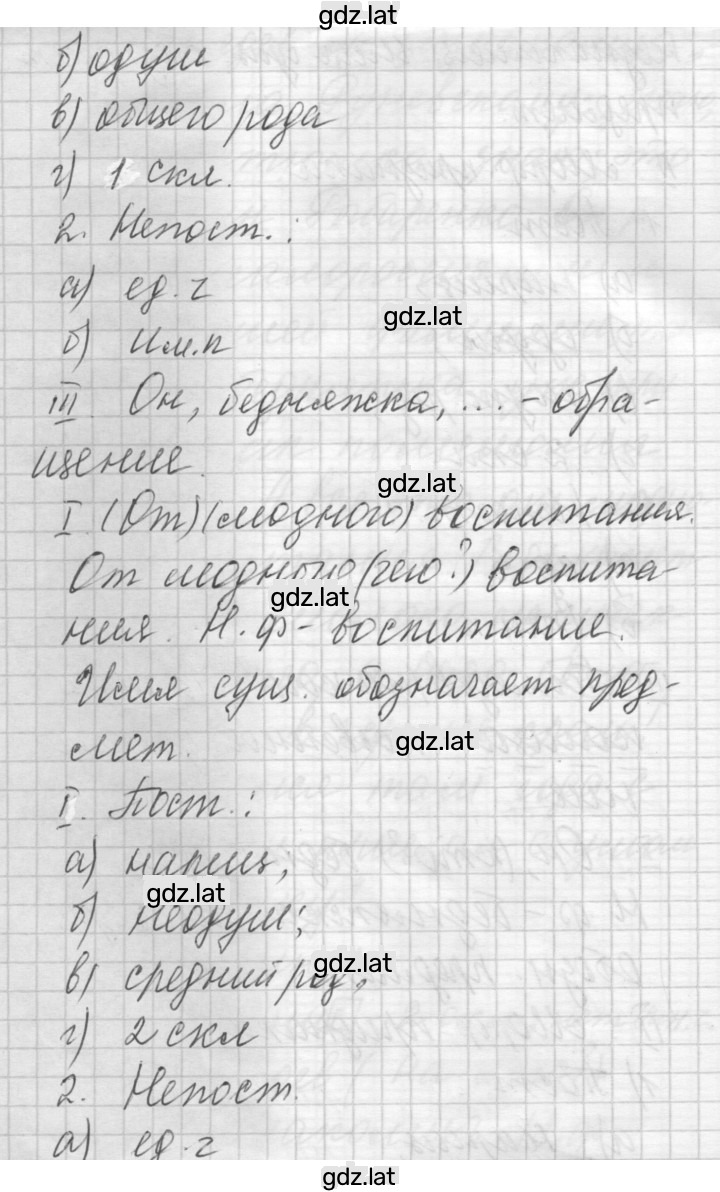 gdz.lat
б) одуш
в) общего рода
г) 1 скл.
2. Непост.:
а) ед. ч
gdz.lat
б) им.п
III Он, бедняжка, ... - обра-
щение.
gdz.lat
I. (От)(модного) воспитания.
От модного (чего?) воспита-
gdz.lat
ния. Н.ф - воспитание.
Имя сущ. обозначает пред-
мет.
gdz.lat
I. Пост.:
а) нариц,
gdz.lat
б) неодуш;
в) средний род,
gdz.lat
г) 2 скл
2. Непост.
а) ед. ч
gdz.lat